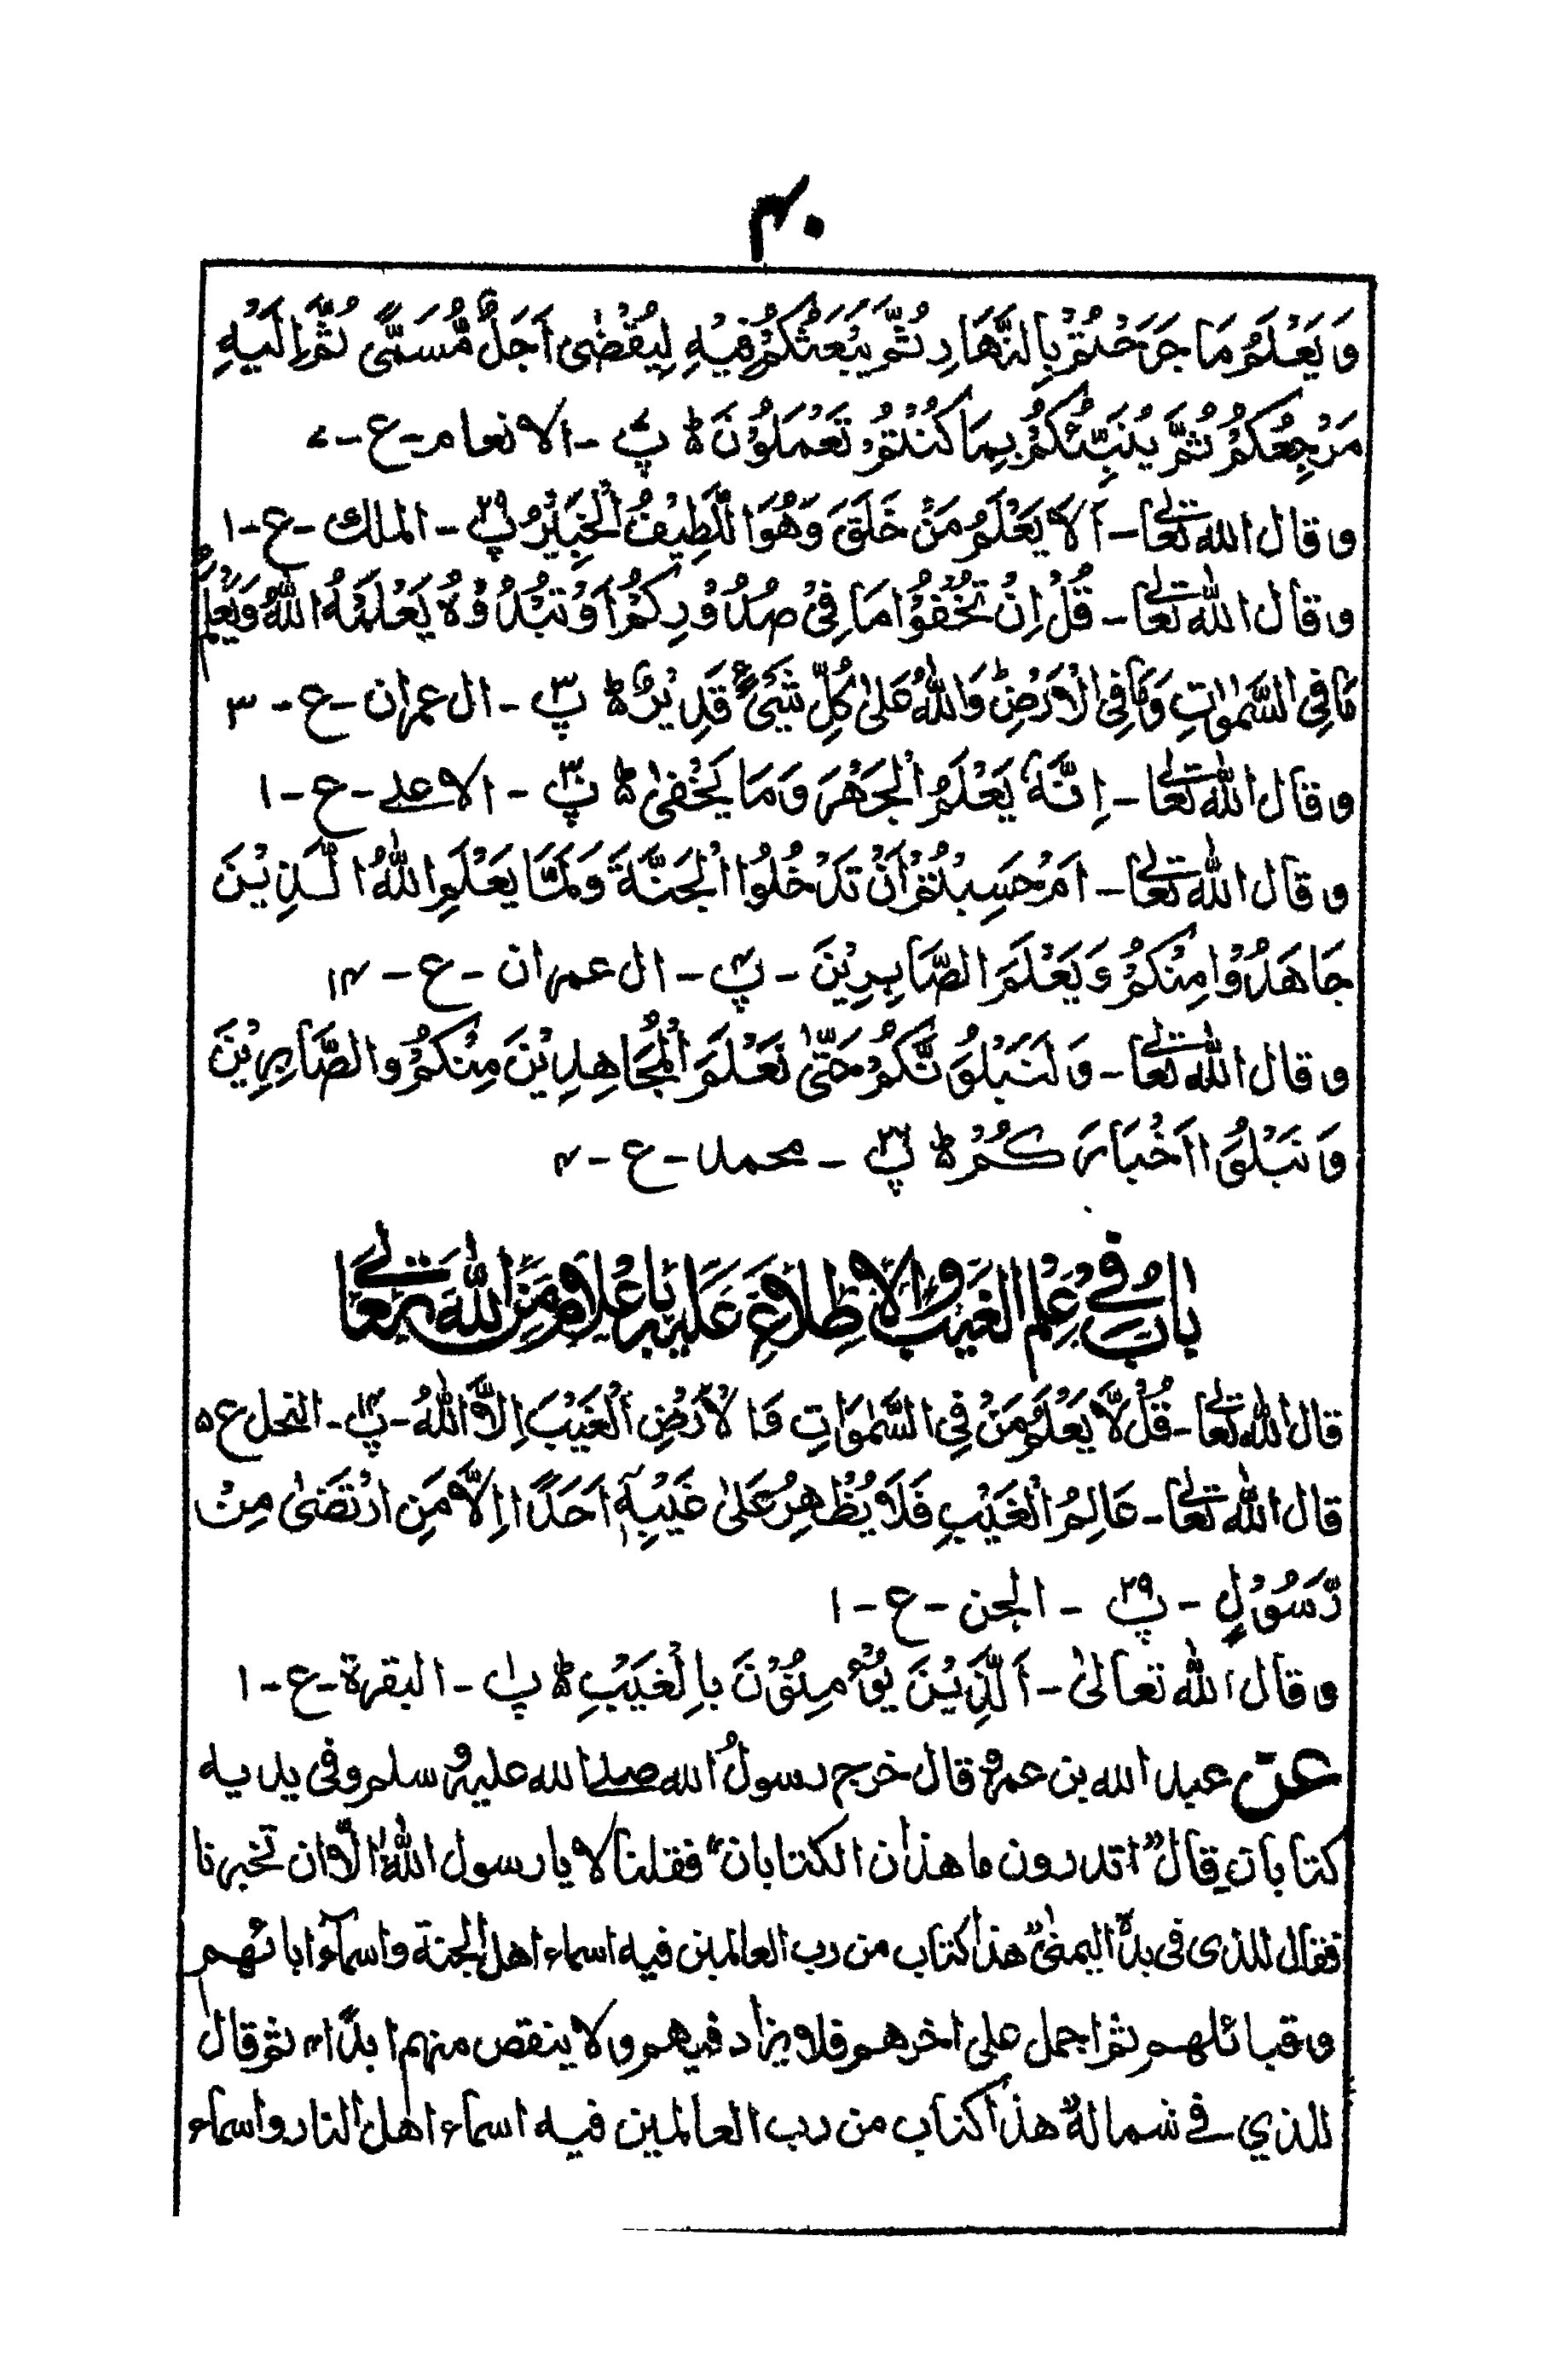 ۴۰
وَيَعْلَمُ مَا جَرَحْتُمْ بِالنَّهَارِ ثُمَّ يَبْعَثُكُمْ فِيْهِ لِيُقْضٰى اَجَلٌ مُّسَمًّى ثُمَّ اِلَيْهِ
مَرْجِعُكُمْ ثُمَّ يُنَبِّئُكُمْ بِمَا كُنْتُمْ تَعْمَلُوْنَ ۵ پ۷ - الانعام - ع - ۷
وقال الله تعالى - اَلَا يَعْلَمُ مَنْ خَلَقَ وَهُوَ اللَّطِيْفُ الْخَبِيْرُ پ۲۹ - الملك - ع - ۱
وقال الله تعالى - قُلْ اِنْ تُخْفُوْا مَا فِيْ صُدُوْرِكُمْ اَوْ تُبْدُوْهُ يَعْلَمْهُ اللهُ وَيَعْلَمُ
مَا فِى السَّمٰوٰتِ وَمَا فِى الْاَرْضِ ؕ وَاللهُ عَلٰى كُلِّ شَيْءٍ قَدِيْرٌ ۵ پ۳ - ال عمران - ع - ۳
وقال الله تعالى - اِنَّهٗ يَعْلَمُ الْجَهْرَ وَمَا يَخْفٰى ۵ پ۳۰ - الاعلے - ع - ۱
وقال الله تعالى - اَمْ حَسِبْتُمْ اَنْ تَدْخُلُوا الْجَنَّةَ وَلَمَّا يَعْلَمِ اللهُ الَّذِيْنَ
جَاهَدُوْا مِنْكُمْ وَيَعْلَمَ الصَّابِرِيْنَ - پ۴ - ال عمران - ع - ۱۴
وقال الله تعالى - وَلَنَبْلُوَنَّكُمْ حَتّٰى نَعْلَمَ الْمُجَاهِدِيْنَ مِنْكُمْ والصَّابِرِيْنَ
وَنَبْلُوَا اَخْبَارَكُمْ ۵ پ۲۶ - محمد - ع - ۴
بابٌ فِي عِلْمِ الْغَيْبِ وَالْاِطْلَاعِ عَلَيْهِ بِاِعْلَامٍ مِّنَ اللهِ تَعَالٰى
قال الله تعالى - قُلْ لَّا يَعْلَمُ مَنْ فِي السَّمٰوَاتِ وَالْاَرْضِ الْغَيْبَ اِلَّا اللهُ - پ۲۰ - النحل ع ۵
قال الله تعالى - عَالِمُ الْغَيْبِ فَلَا يُظْهِرُ عَلٰى غَيْبِهٖ اَحَدًا اِلَّا مَنِ ارْتَضٰى مِنْ
رَّسُوْلٍ - پ۲۹ - الجن - ع - ۱
وقال الله تعالىٰ - اَلَّذِيْنَ يُؤْمِنُوْنَ بِالْغَيْبِ ۵ پ۱ - البقرة - ع - ۱
عن عبد الله بن عمرو قال خرج رسولُ الله صلے الله عليه وسلم وفى يديه
كتابان فقال "اتدرون ما هذان الكتابان" فقلنا لا يا رسول الله الّا ان تخبرنا
فقال للذى فى يده اليمنىٰ "هذا كتاب من رب العالمين فيه اسماء اهل الجنة واسماء ابائهم
وقبائلهم ثم اجمل على اخرهم فلا يزاد فيهم ولا ينقص منهم ابدًا" ثم قال
للذي فى شماله "هذا كتاب من رب العالمين فيه اسماء اهل النار واسماء